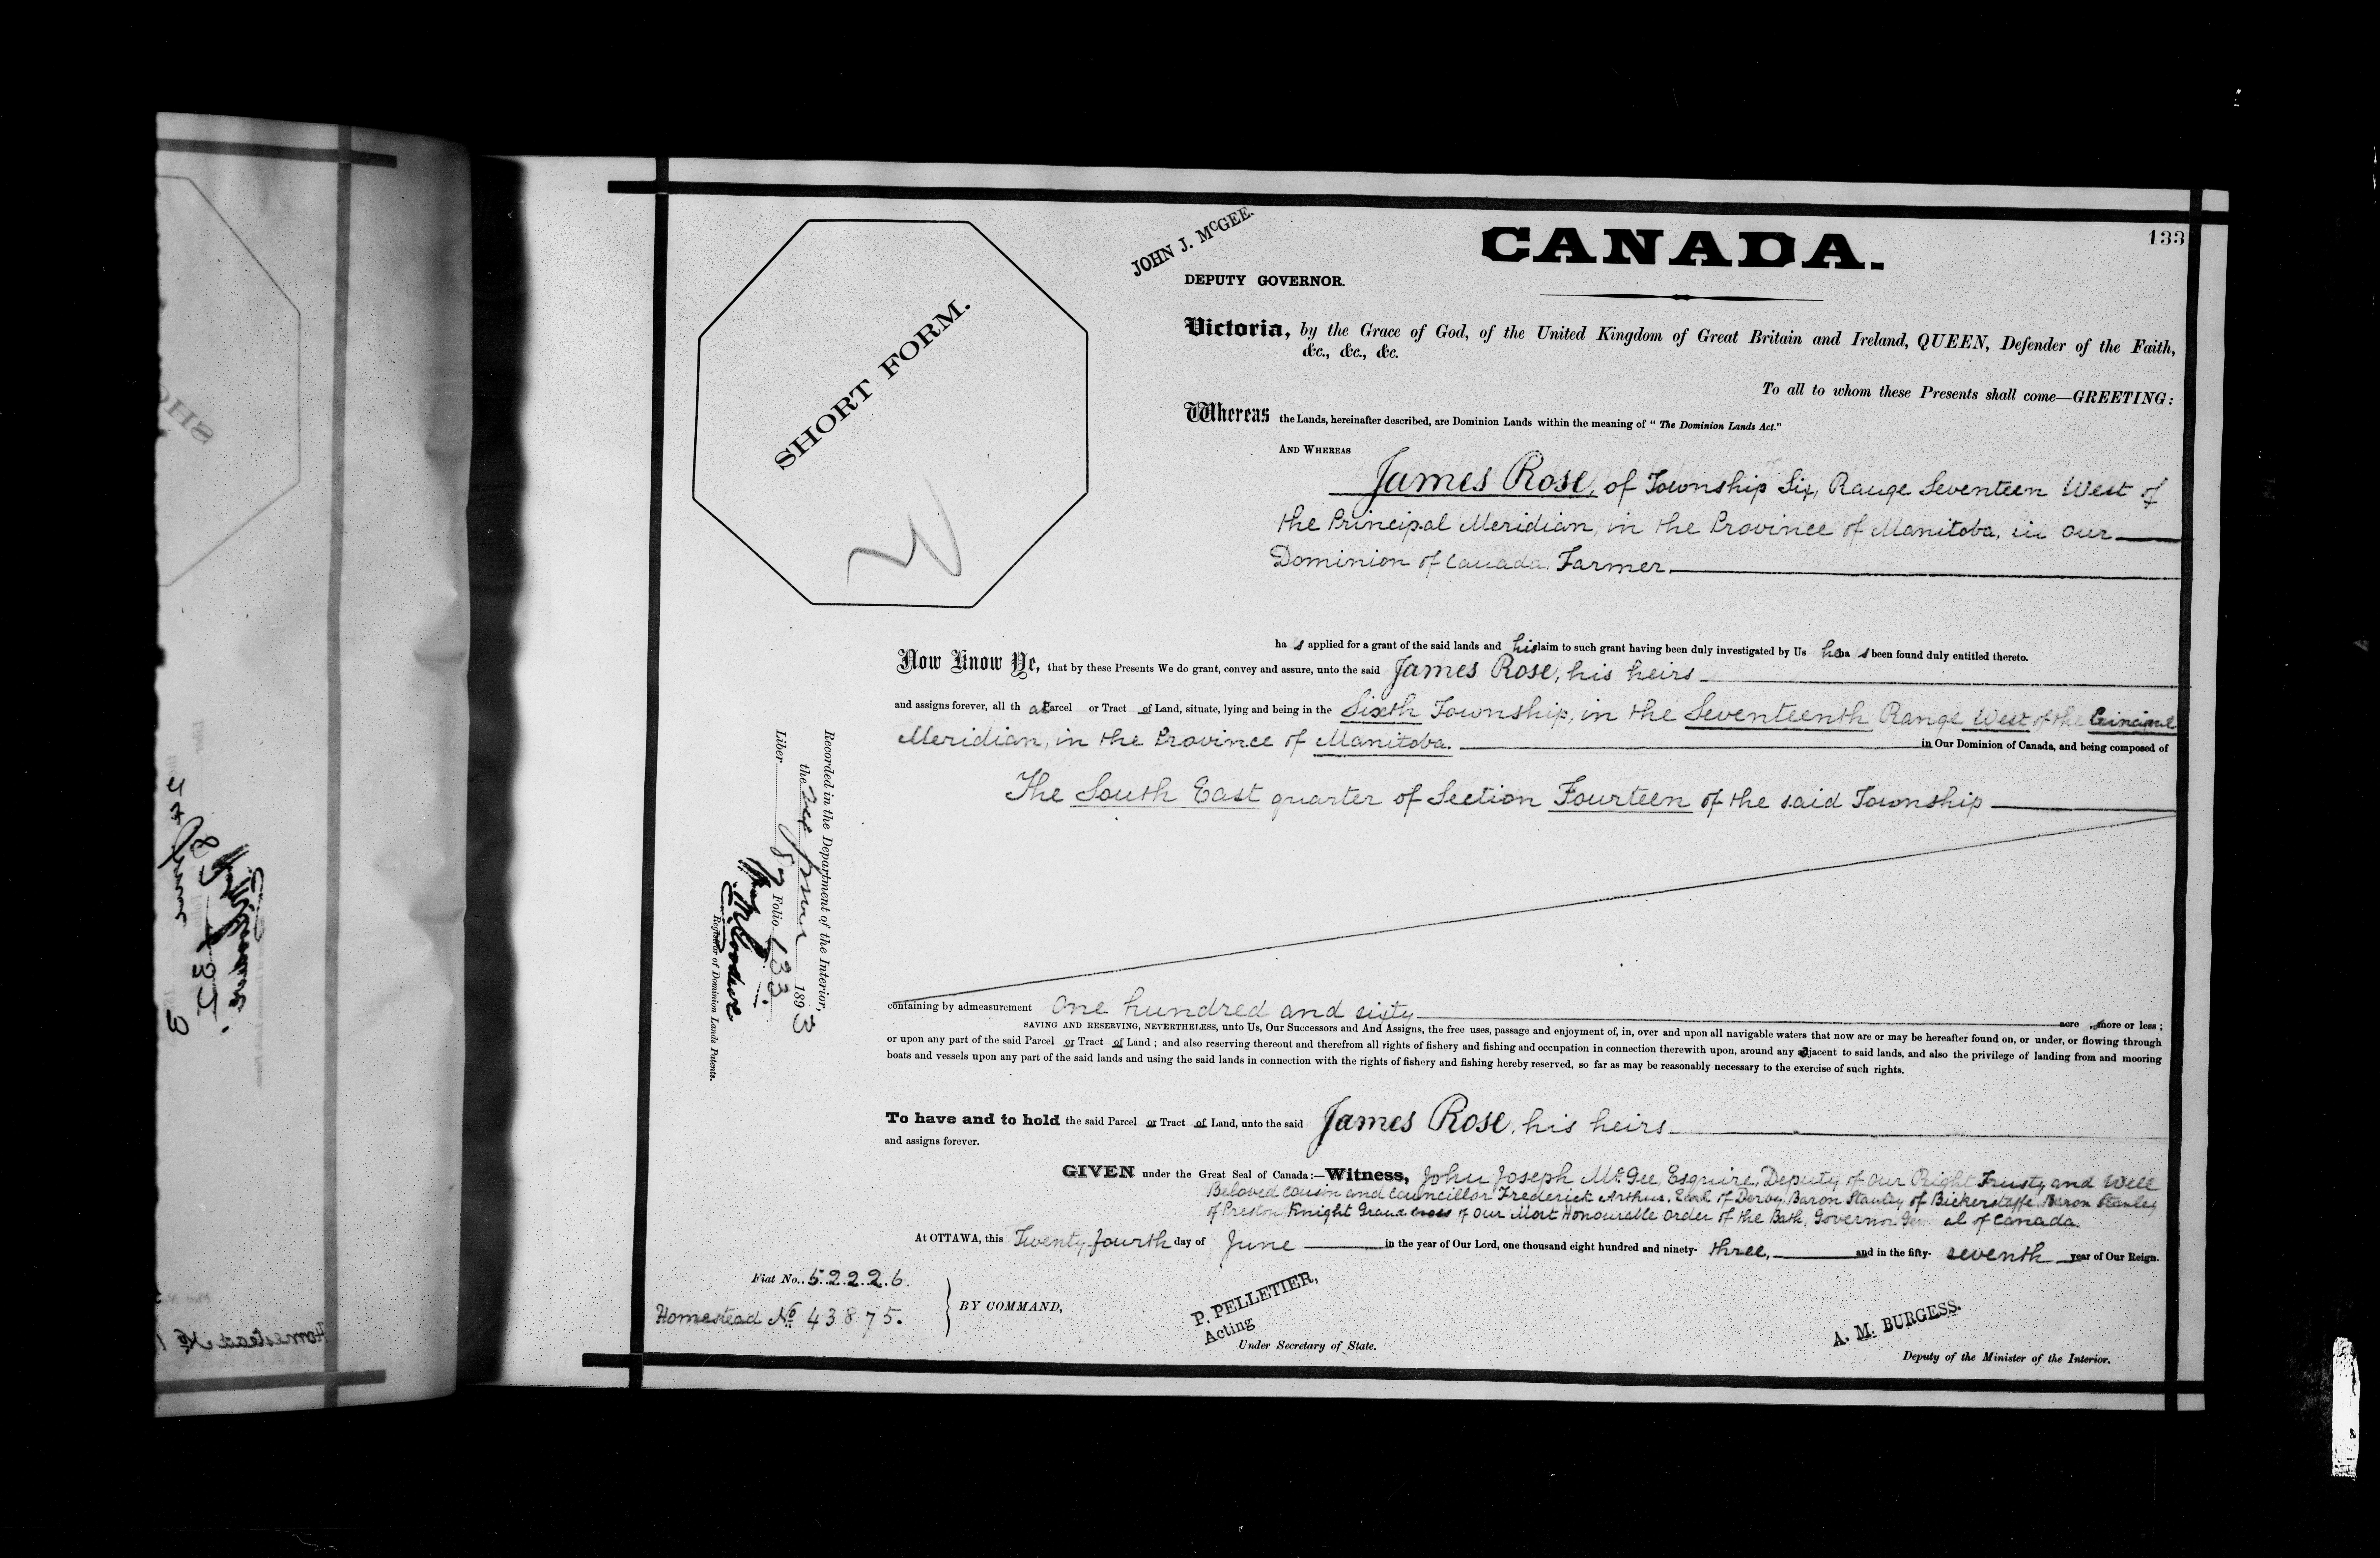 133
CANADA.
JOHN J. McGEE.
DEPUTY GOVERNOR.
SHORT FORM.
Victoria, by the Grace of God, of the United Kingdom of Great Britain and Ireland, QUEEN, Defender of the Faith,
&c., &c., &c.
To all to whom these Presents shall come—GREETING:
Whereas the Lands, hereinafter described, are Dominion Lands within the meaning of "The Dominion Lands Act."
AND WHEREAS
James Rose, of Township Six, Range Seventeen West of
the Principal Meridian, in the Province of Manitoba, in our
Dominion of Canada, Farmer.
ha s applied for a grant of the said lands and his claim to such grant having been duly investigated by Us he ha s been found duly entitled thereto.
Now Know Ye, that by these Presents We do grant, convey and assure, unto the said James Rose, his heirs
and assigns forever, all th at Parcel or Tract of Land, situate, lying and being in the Sixth Township, in the Seventeenth Range West of the Principal
Meridian, in the Province of Manitoba. in Our Dominion of Canada, and being composed of
The South East quarter of Section Fourteen of the said Township
containing by admeasurement one hundred and sixty acre more or less;
SAVING AND RESERVING, NEVERTHELESS, unto Us, Our Successors and And Assigns, the free uses, passage and enjoyment of, in, over and upon all navigable waters that now are or may be hereafter found on, or under, or flowing through
or upon any part of the said Parcel or Tract of Land; and also reserving thereout and therefrom all rights of fishery and fishing and occupation in connection therewith upon, around any adjacent to said lands, and also the privilege of landing from and mooring
boats and vessels upon any part of the said lands and using the said lands in connection with the rights of fishery and fishing hereby reserved, so far as may be reasonably necessary to the exercise of such rights.
To have and to hold the said Parcel or Tract of Land, unto the said James Rose, his heirs
and assigns forever.
GIVEN under the Great Seal of Canada:—Witness, John Joseph McGee, Esquire, Deputy of Our Right Trusty and Well
Beloved Cousin and Councillor Frederick Arthur, Earl of Derby, Baron Stanley of Bickerstaffe, Baron Stanley
of Preston, Knight Grand Cross of Our Most Honourable Order of the Bath, Governor General of Canada.
At OTTAWA, this Twenty fourth day of June in the year of Our Lord, one thousand eight hundred and ninety- three, and in the fifty- seventh year of Our Reign.
Fiat No. 52226.
Homestead No 43875.
BY COMMAND,
P. PELLETIER,
Acting
Under Secretary of State.
A. M. BURGESS.
Deputy of the Minister of the Interior.
Recorded in the Department of the Interior,
the June 1893
Liber 87 Folio 133.
Registrar of Dominion Lands Patents.